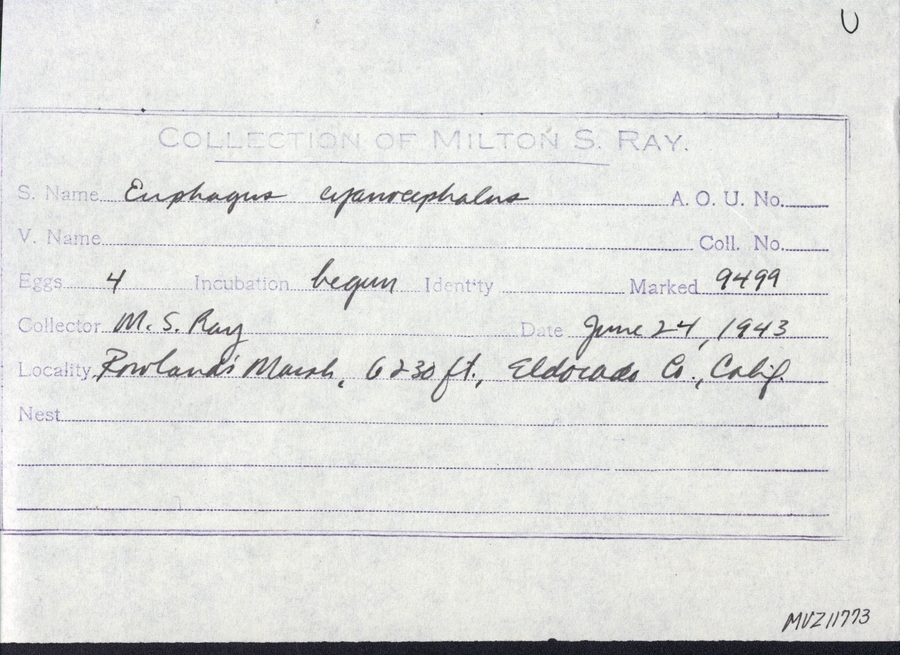 U
COLLECTION OF MILTON S. RAY.
S. Name Euphagus cyanocephalus A. O. U. No.
V. Name Coll. No.
Eggs 4 Incubation begun Identity Marked 9499
Collector M. S. Ray Date June 24, 1943
Locality Rowland's Marsh, 6230 ft., Eldorado Co., Calif.
Nest
MVZ11773